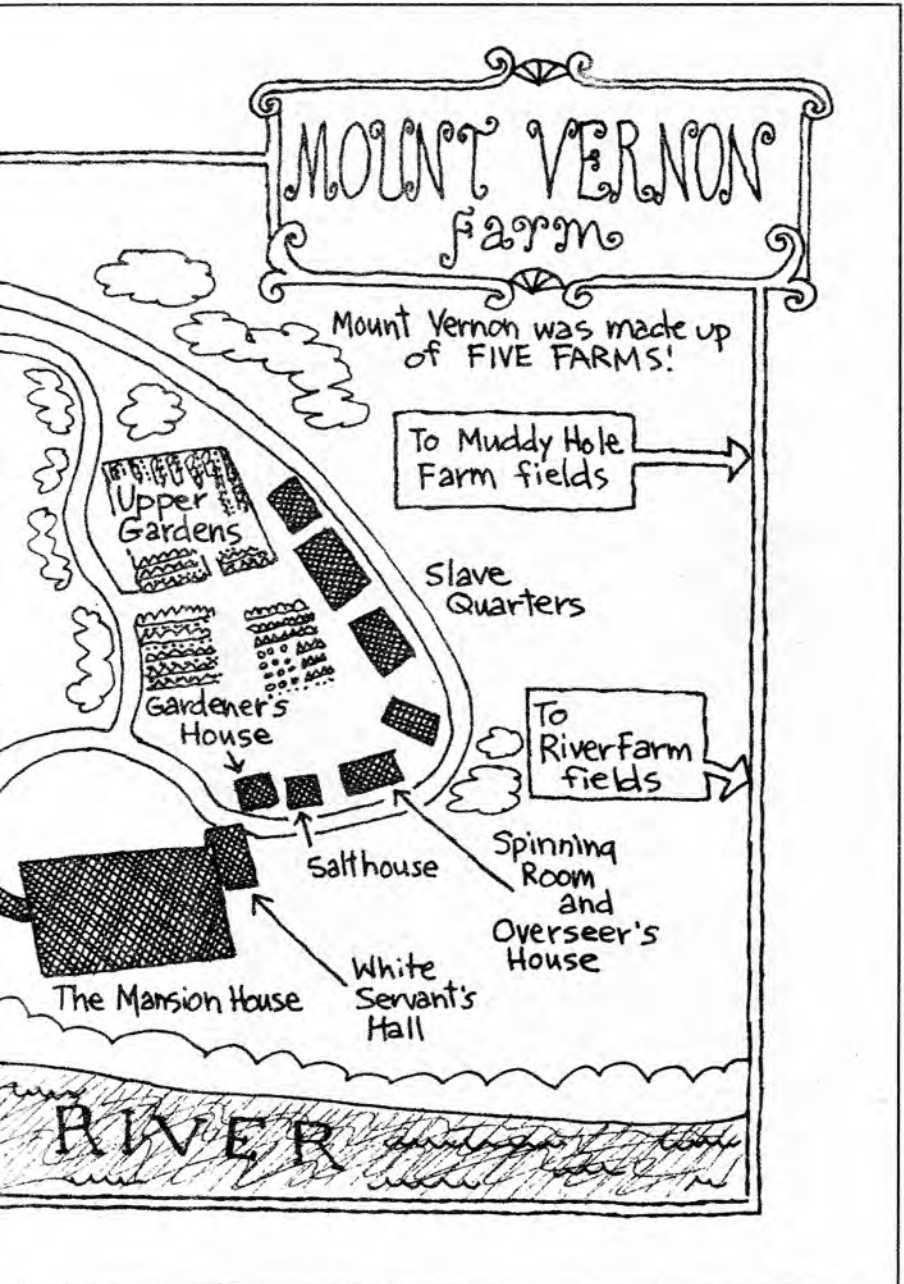 MOUNT VERNON
Farm
Mount Vernon was made up
of FIVE FARMS!
To Muddy Hole
Farm fields
Upper
Gardens
Slave
Quarters
Gardener's
House
To
River Farm
fields
Salthouse
Spinning
Room
and
Overseer's
House
The Mansion House
White
Servant's
Hall
RIVER